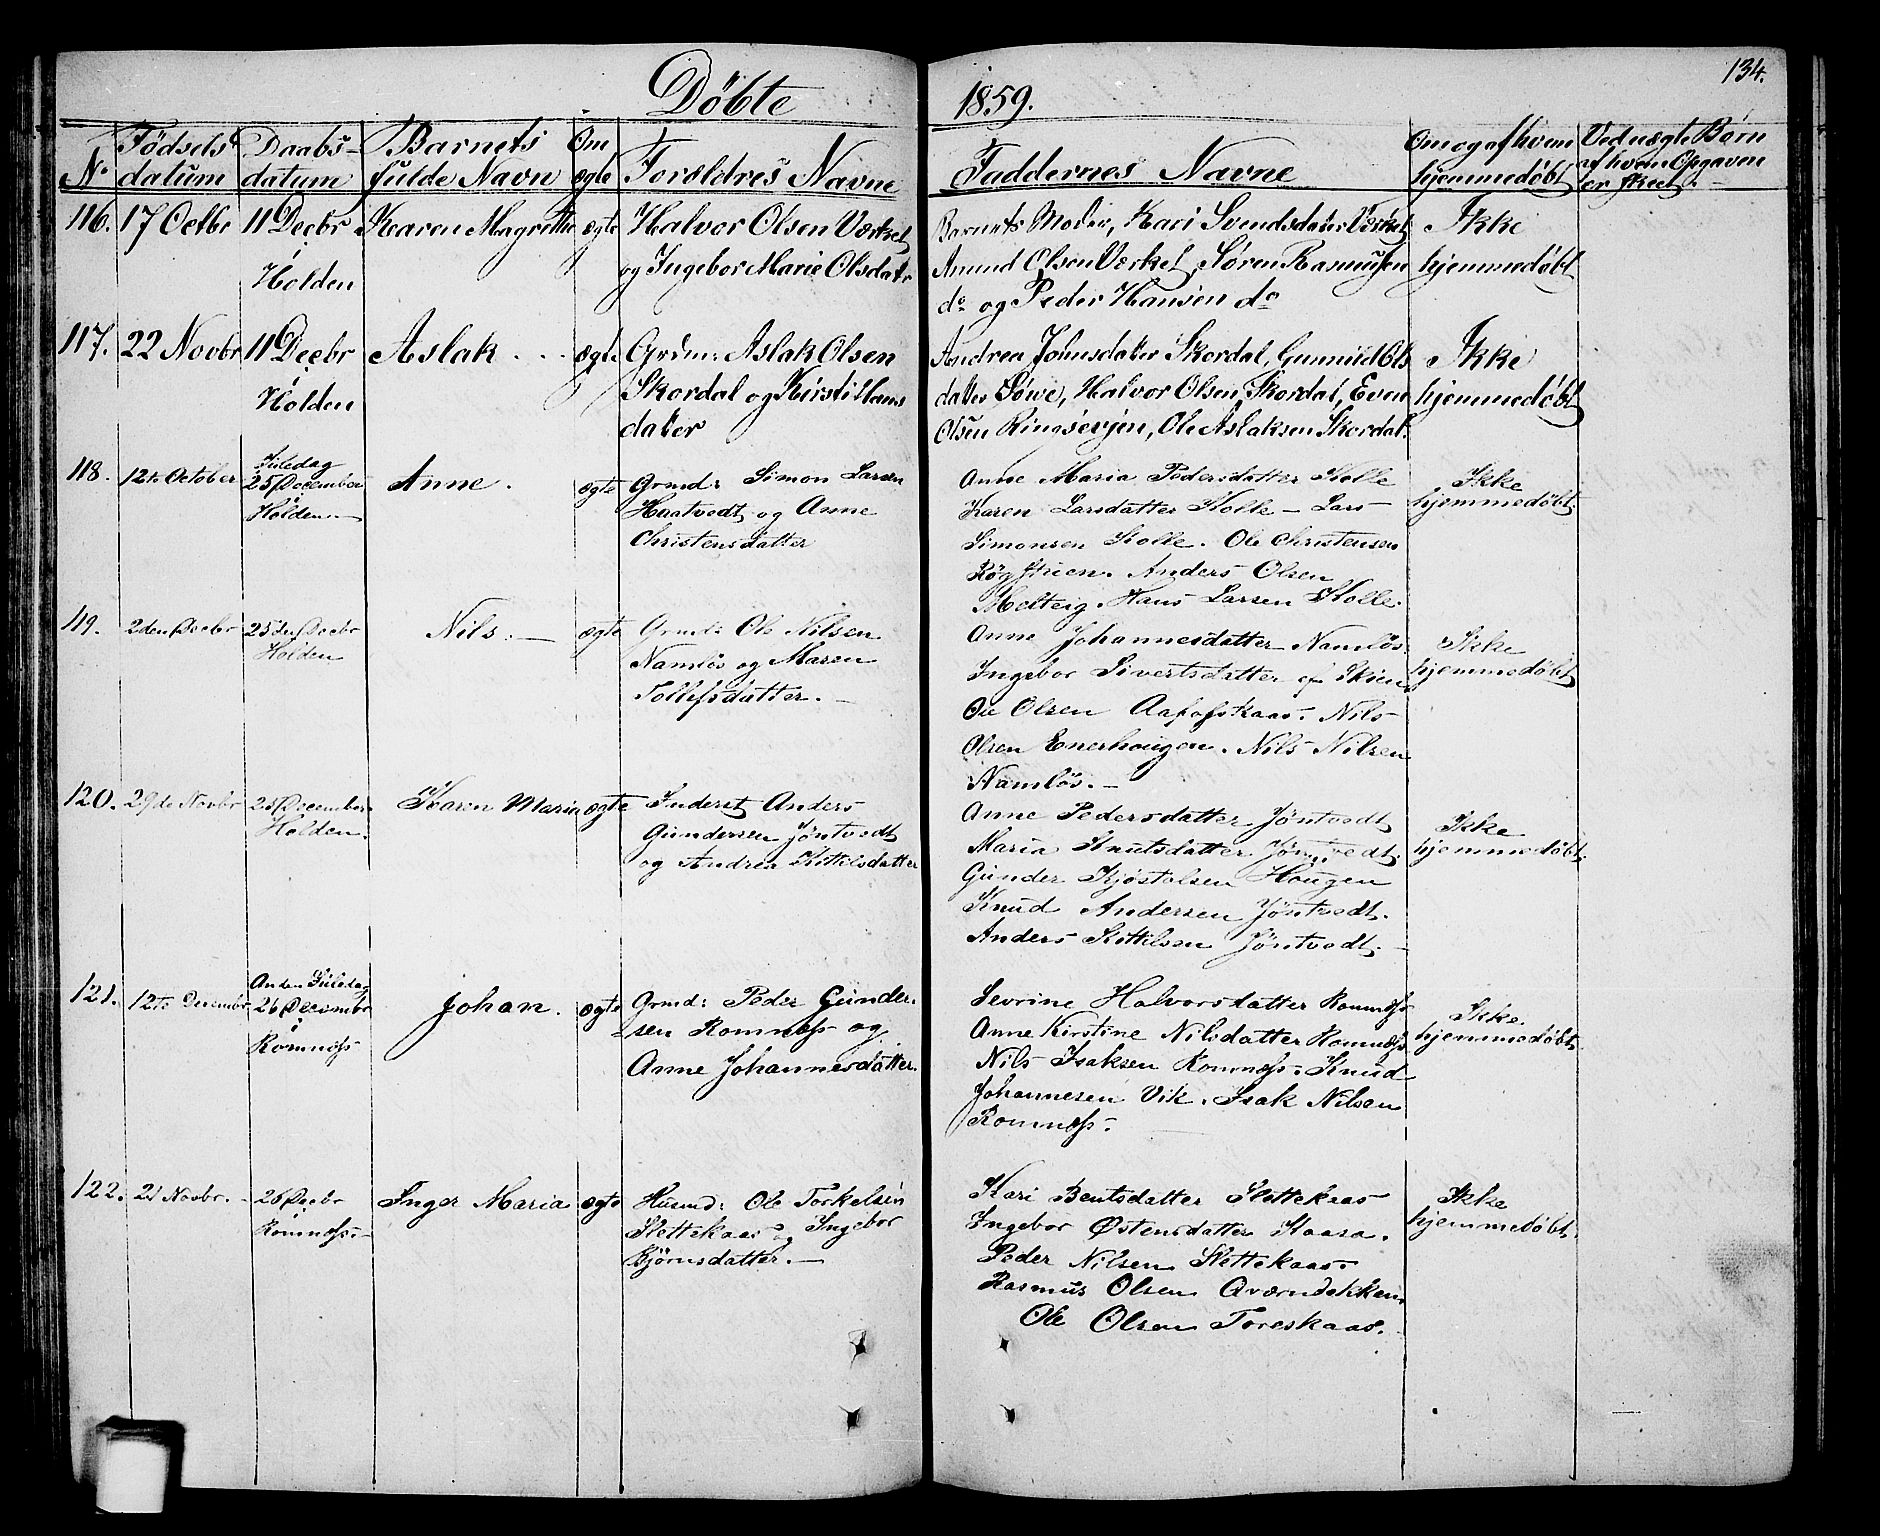 134.
Döbte 1859.
No Födsels datum
Daabs- datum
Barnets fulde Navn
Om ægte
Forældres Navne
Faddernes Navne
Om og af hvem hjemmedöbt
Ved uægte Børn af hvem Opgaven er skeet.
116. 17 Octbr 11 Decbr Karen Magrethe ægte Halvor Olsen Værket
i Holden og Ingebor Marie Olsdatr
Barnets Moder, Kari Svendsdater Værket,
Amund Olsen Værket, Sören Rasmussen
do og Peder Hansen do
Ikke
hjemmedöbt
117. 22 Novbr 11 Decbr Aslak ægte Grdm: Aslak Olsen
i Holden Skordal og Kirsti Hans
dater
Andrea Johnsdater Skordal, Gunnild Ols
datter Søwe, Halvor Olsen Skordal, Even
Olsen Ringsevjen, Ole Aslaksen Skordal.
Ikke
hjemmedöbt
118. 12te October Juledag
25 December
i Holden.
Anne. ægte Grmd: Simon Larsen
Haatvedt og Anne
Christensdatter
Anne Maria Pedersdatter Kolle
Karen Larsdatter Kolle - Lars
Simonsen Kolle. Ole Christensen
Anders Olsen
Melteig. Hans Larsen Kolle.
Ikke
hjemmedöbt.
119. 2den Decbr 25de Decbr
i Holden
Nils. ægte Grmd: Ole Nilsen
Namlös og Maren
Tollefsdatter.
Anne Johannesdatter Namlös.
Ingebor Sivertsdatter af Skien
Ole Olsen Aafosskaas. Nils
Olsen Enerhougen. Nils Nilsen
Namlös.
Ikke
hjemmedöbt
120. 29de Novbr 25 December
Holden.
Karen Maria ægte Inderst Anders
Gundersen Jöntvedt
og Andrea Kittilsdatter
Anne Pedersdatter Jöntvedt
Maria Knutsdatter Jöntvedt.
Gunder Kjöstolsen Hougen
Knud Andersen Jöntvedt.
Anders Kittilsen Jöntvedt.
Ikke
hjemmedöbt.
121. 12te Decembr Anden Juledag
26 Decembr
i Romnæs
Johan. ægte Grmd: Peder Gunder-
sen Romnæs og
Anne Johannesdatter.
Sevrine Halvorsdatter Romnæs
Anne Kirstine Nilsdatter Romnæs
Nils Isaksen Romnæs. Knud
Johannesen Vik. Isak Nilsen
Romnæs.
Ikke
hjemmedöbt.
122. 21 Novbr. 26 Decbr
Romnæs.
Inger Maria ægte Husmd: Ole Torkelsen
Slettekaas og Ingebor
Björnsdatter.
Kari Bentsdatter Slettekaas
Ingebor Østensdatter Kaasa.
Peder Nilsen Slettekaas
Rasmus Olsen Qværndokken
Ole Olsen Toreskaas.
Ikke
hjemmedöbt.